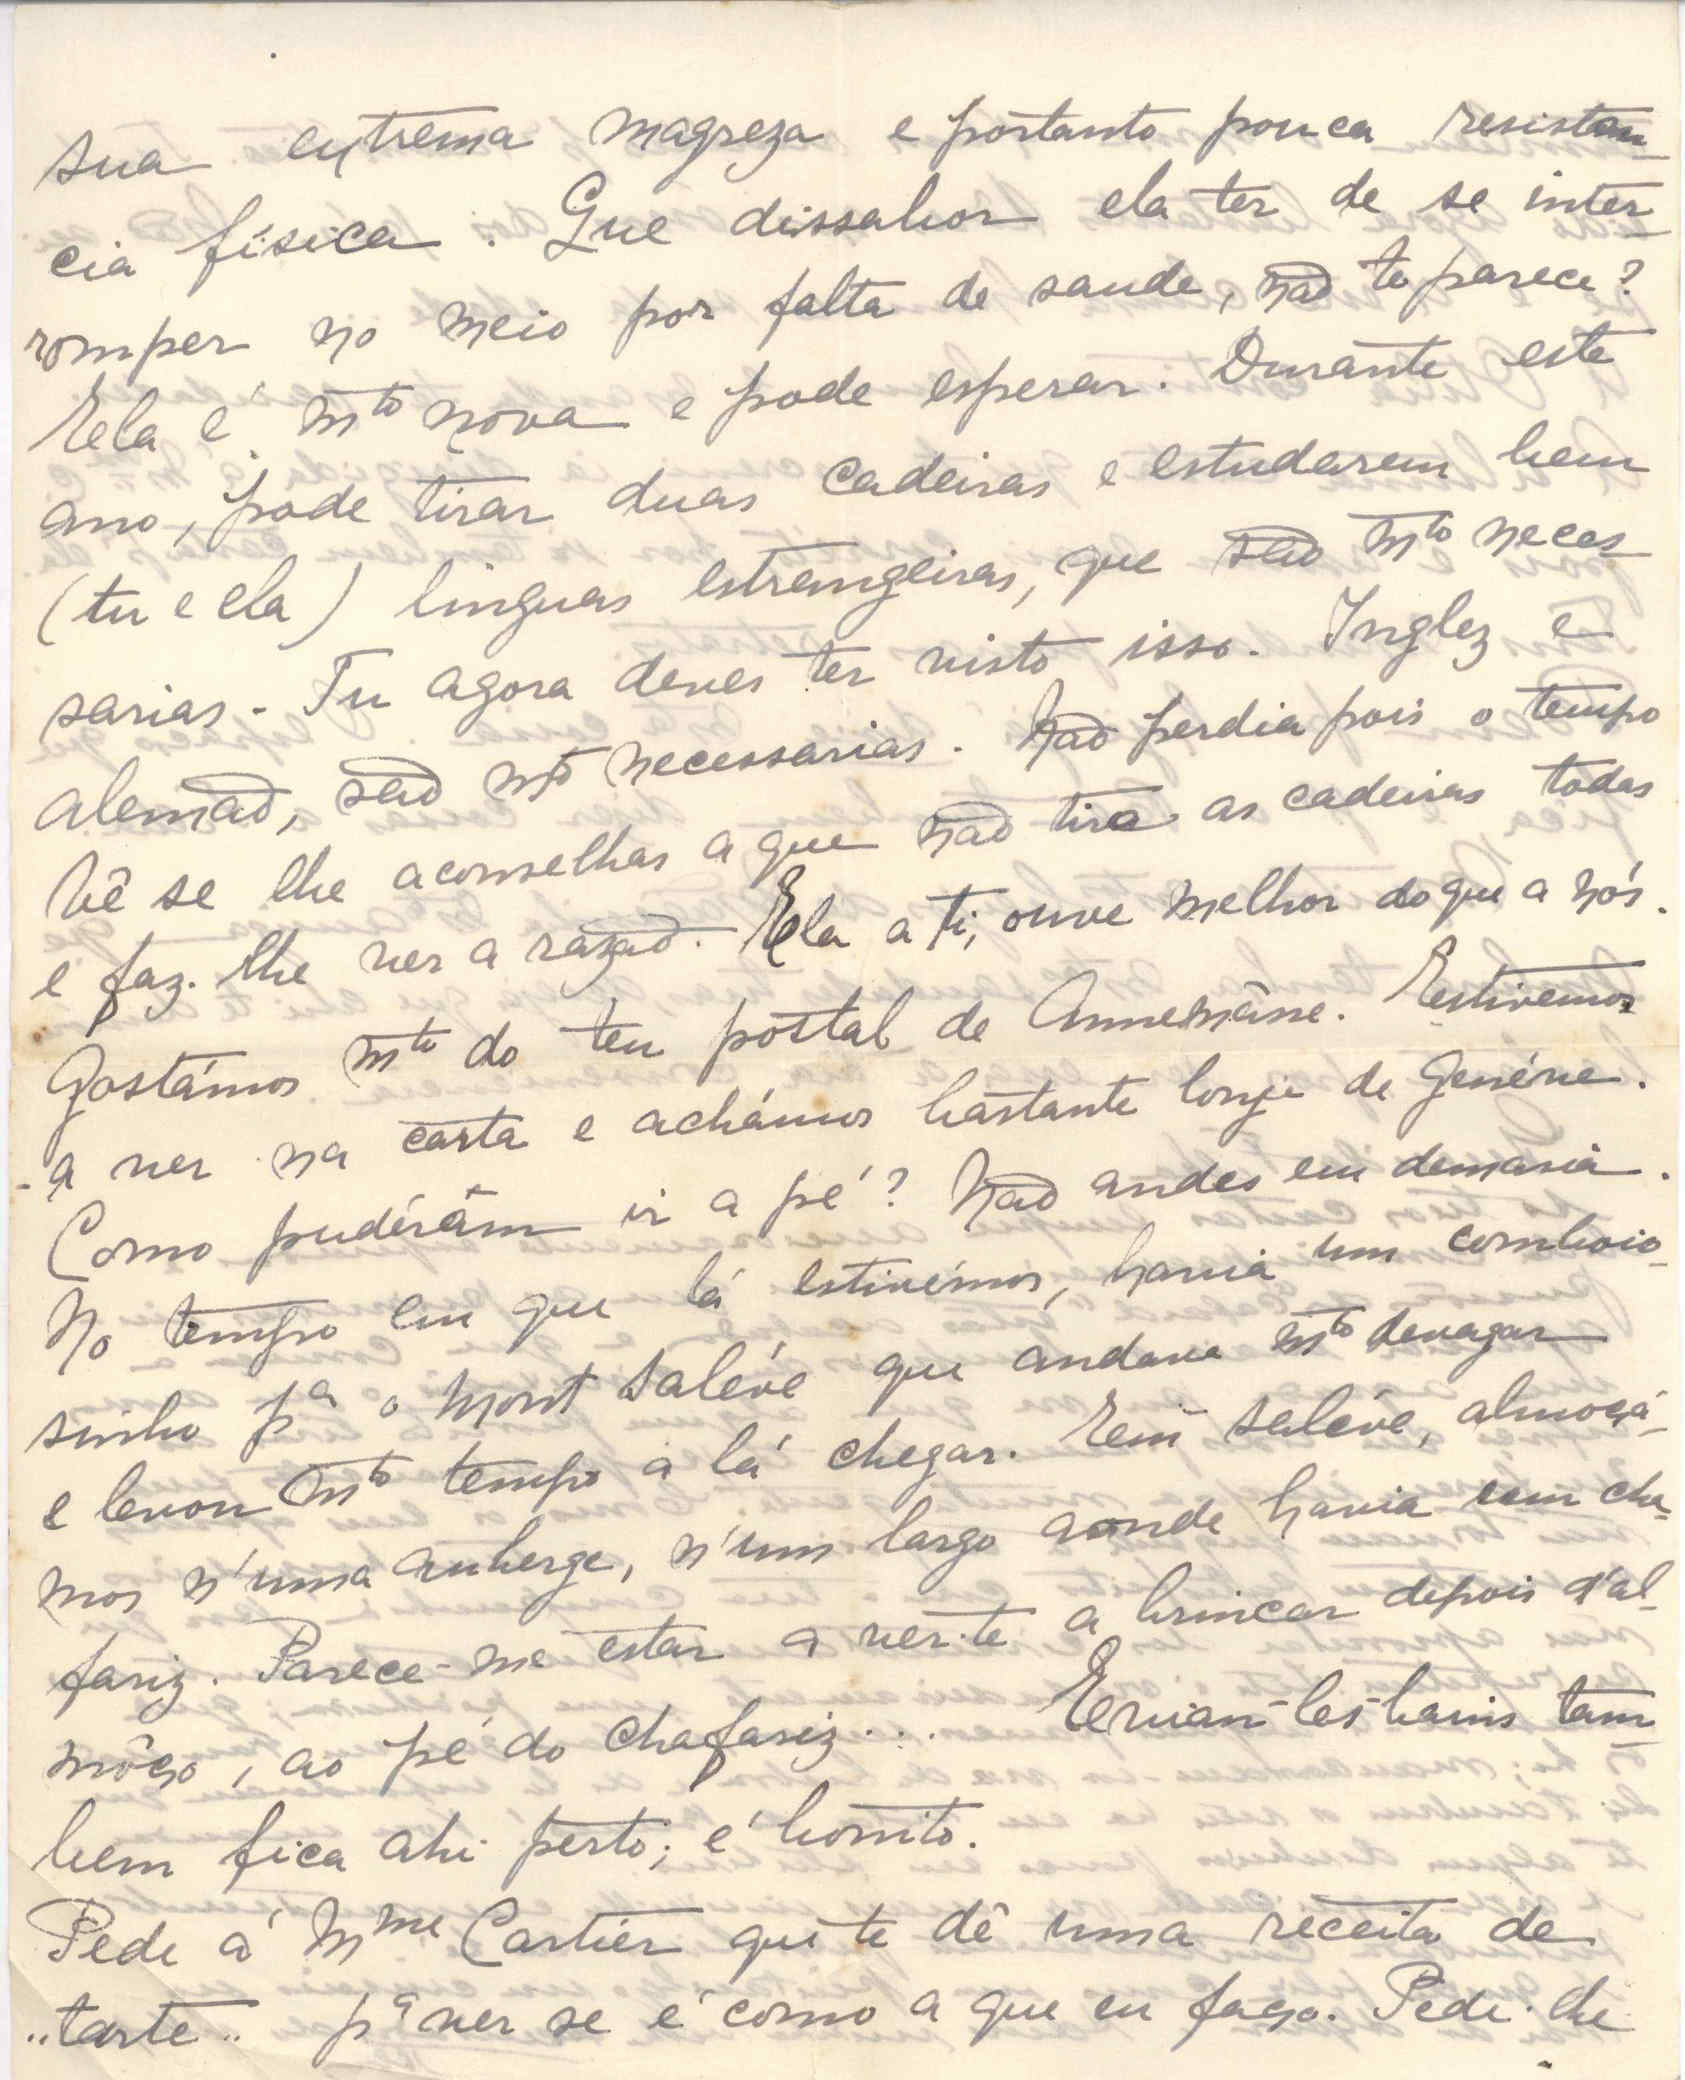 sua extrema magreza e portanto pouca resistan-
cia física. Que dissabor ela ter de se inter-
romper no meio por falta de saude, não te parece?
Ela é mto nova e pode esperar. Durante este
ano, pode tirar duas cadeiras e estudarem bem
(tu e ela) linguas estrangeiras, que são mto neces-
sarias. Tu agora deves ter visto isso. Inglez e
alemão, são mto necessarias. Não perdia pois o tempo
Vê se lhe aconselhas a que não tire as cadeiras todas
e faz-lhe ver a razão. Ela a ti, ouve melhor do que a nós.
Gostámos mto do teu postal de Annemâsse. Estivemos
a ver na carta e achámos bastante longe de Genéve.
Como pudérâm ir a pé? Não andes em demasia.
No tempo em que lá estivémos, havia um comboio-
sinho pª o Mont Saléve que andava mto devagar
e levou mto tempo a lá chegar. Em Saléve, almoçá-
mos n'uma auberge, n'um largo aonde havia um cha-
fariz. Parece-me estar a ver-te a brincar depois d'al-
môço, ao pé do chafariz... Evian-les-bains tam-
bem fica ahi perto; é bonito.
Pede á Mme Cartier que te dê uma receita de
"tarte" pª ver se é como a que eu faço. Pede-lhe